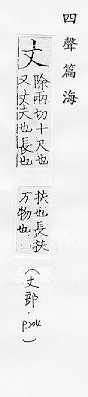 四聲篇海
丈
除兩切十尺也
又丈夫也長也
扶也長扶
万物也
(丈部.